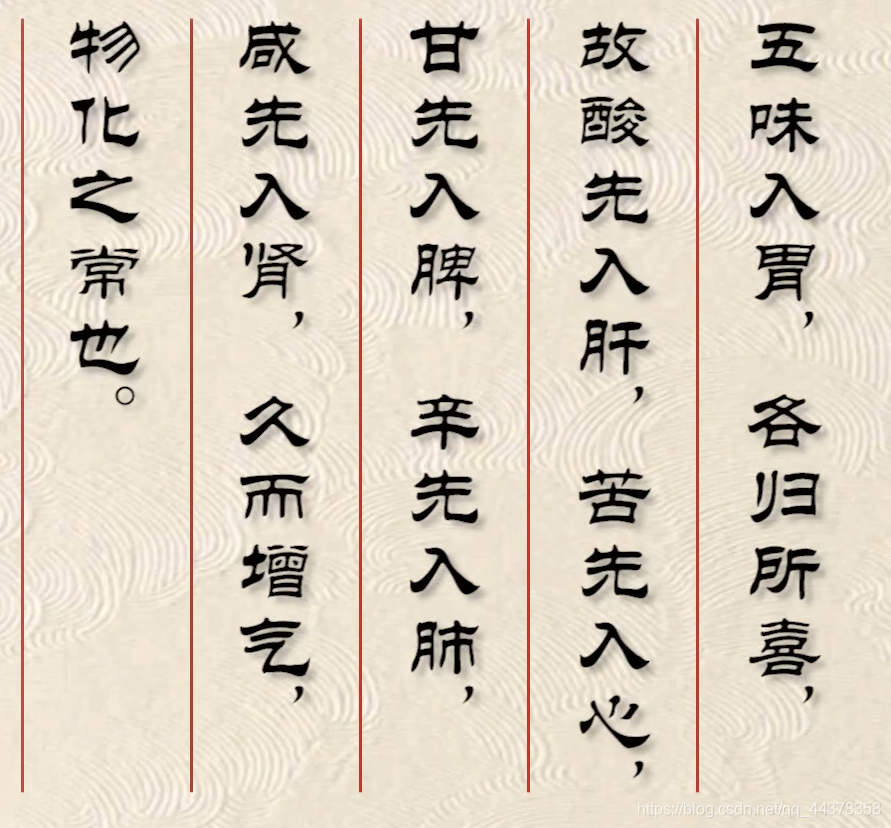 五味入胃，各归所喜，
故酸先入肝，苦先入心，
甘先入脾，辛先入肺，
咸先入肾，久而增气，
物化之常也。
https://blog.csdn.net/qq_44378358